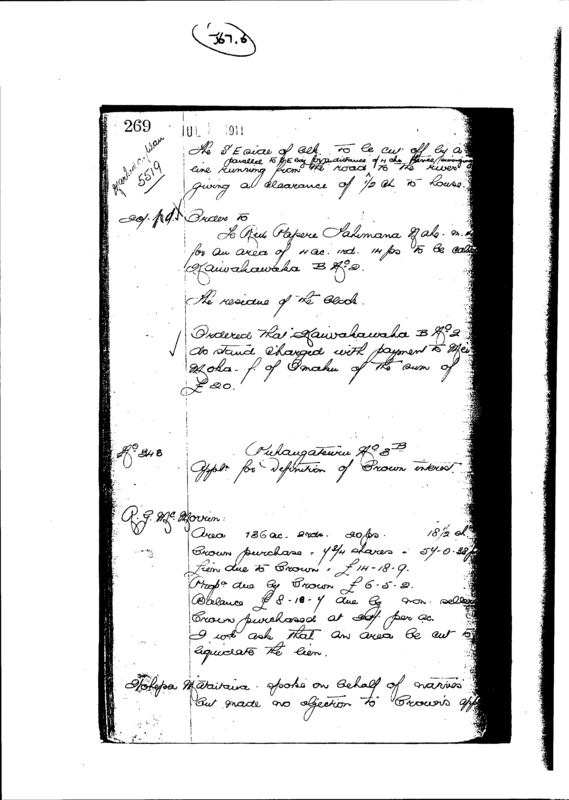 367.6
269
JUL 1911
5519
The S E side of blk. to be cut off by a
parallel to S E bdy for a distance of 4 chs thence
line running from the road to the river
giving a clearance of 1/2 ch to house.
20/. pd. Order to
Te Hapere Tahimana
for an area of 4 ac. 1rd. 14 ps to be called
Kaiwahawaha B No 2.
The residue of the block.
Ordered that Kaiwahawaha B No 2
do stand charged with payment to
Moha. f. of Omahu of the sum of
£20.
No 348
No 3B
Appln for Definition of Crown interest
R. G. Mc Morrin:
Area 136 ac. 2rds. 20ps. 18 1/2 sh.
Crown purchase. 4 3/4 shares - 54-0-38 p
Lien due to Crown. £14-18-9.
Propn due by Crown £6-5-2.
Balance £8-10-7 due by non. sellers
Crown purchased at 20/ per ac.
I wd ask that an area be cut to
liquidate the lien.
Matitaiwa. spoke on behalf of natives
but made no objection to Crown's app